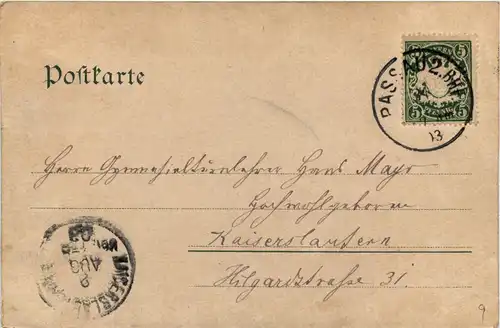 Postkarte
BAYERN
5 5
5 PFENNIG 5
PASSAU 2. BHF
03
Herrn Gymnasialturnlehrer Hans Mayr
Hochwohlgeboren
Kaiserslautern
Hilgardstrasse 31.
KAISERSLAUTERN
AUG
03
9